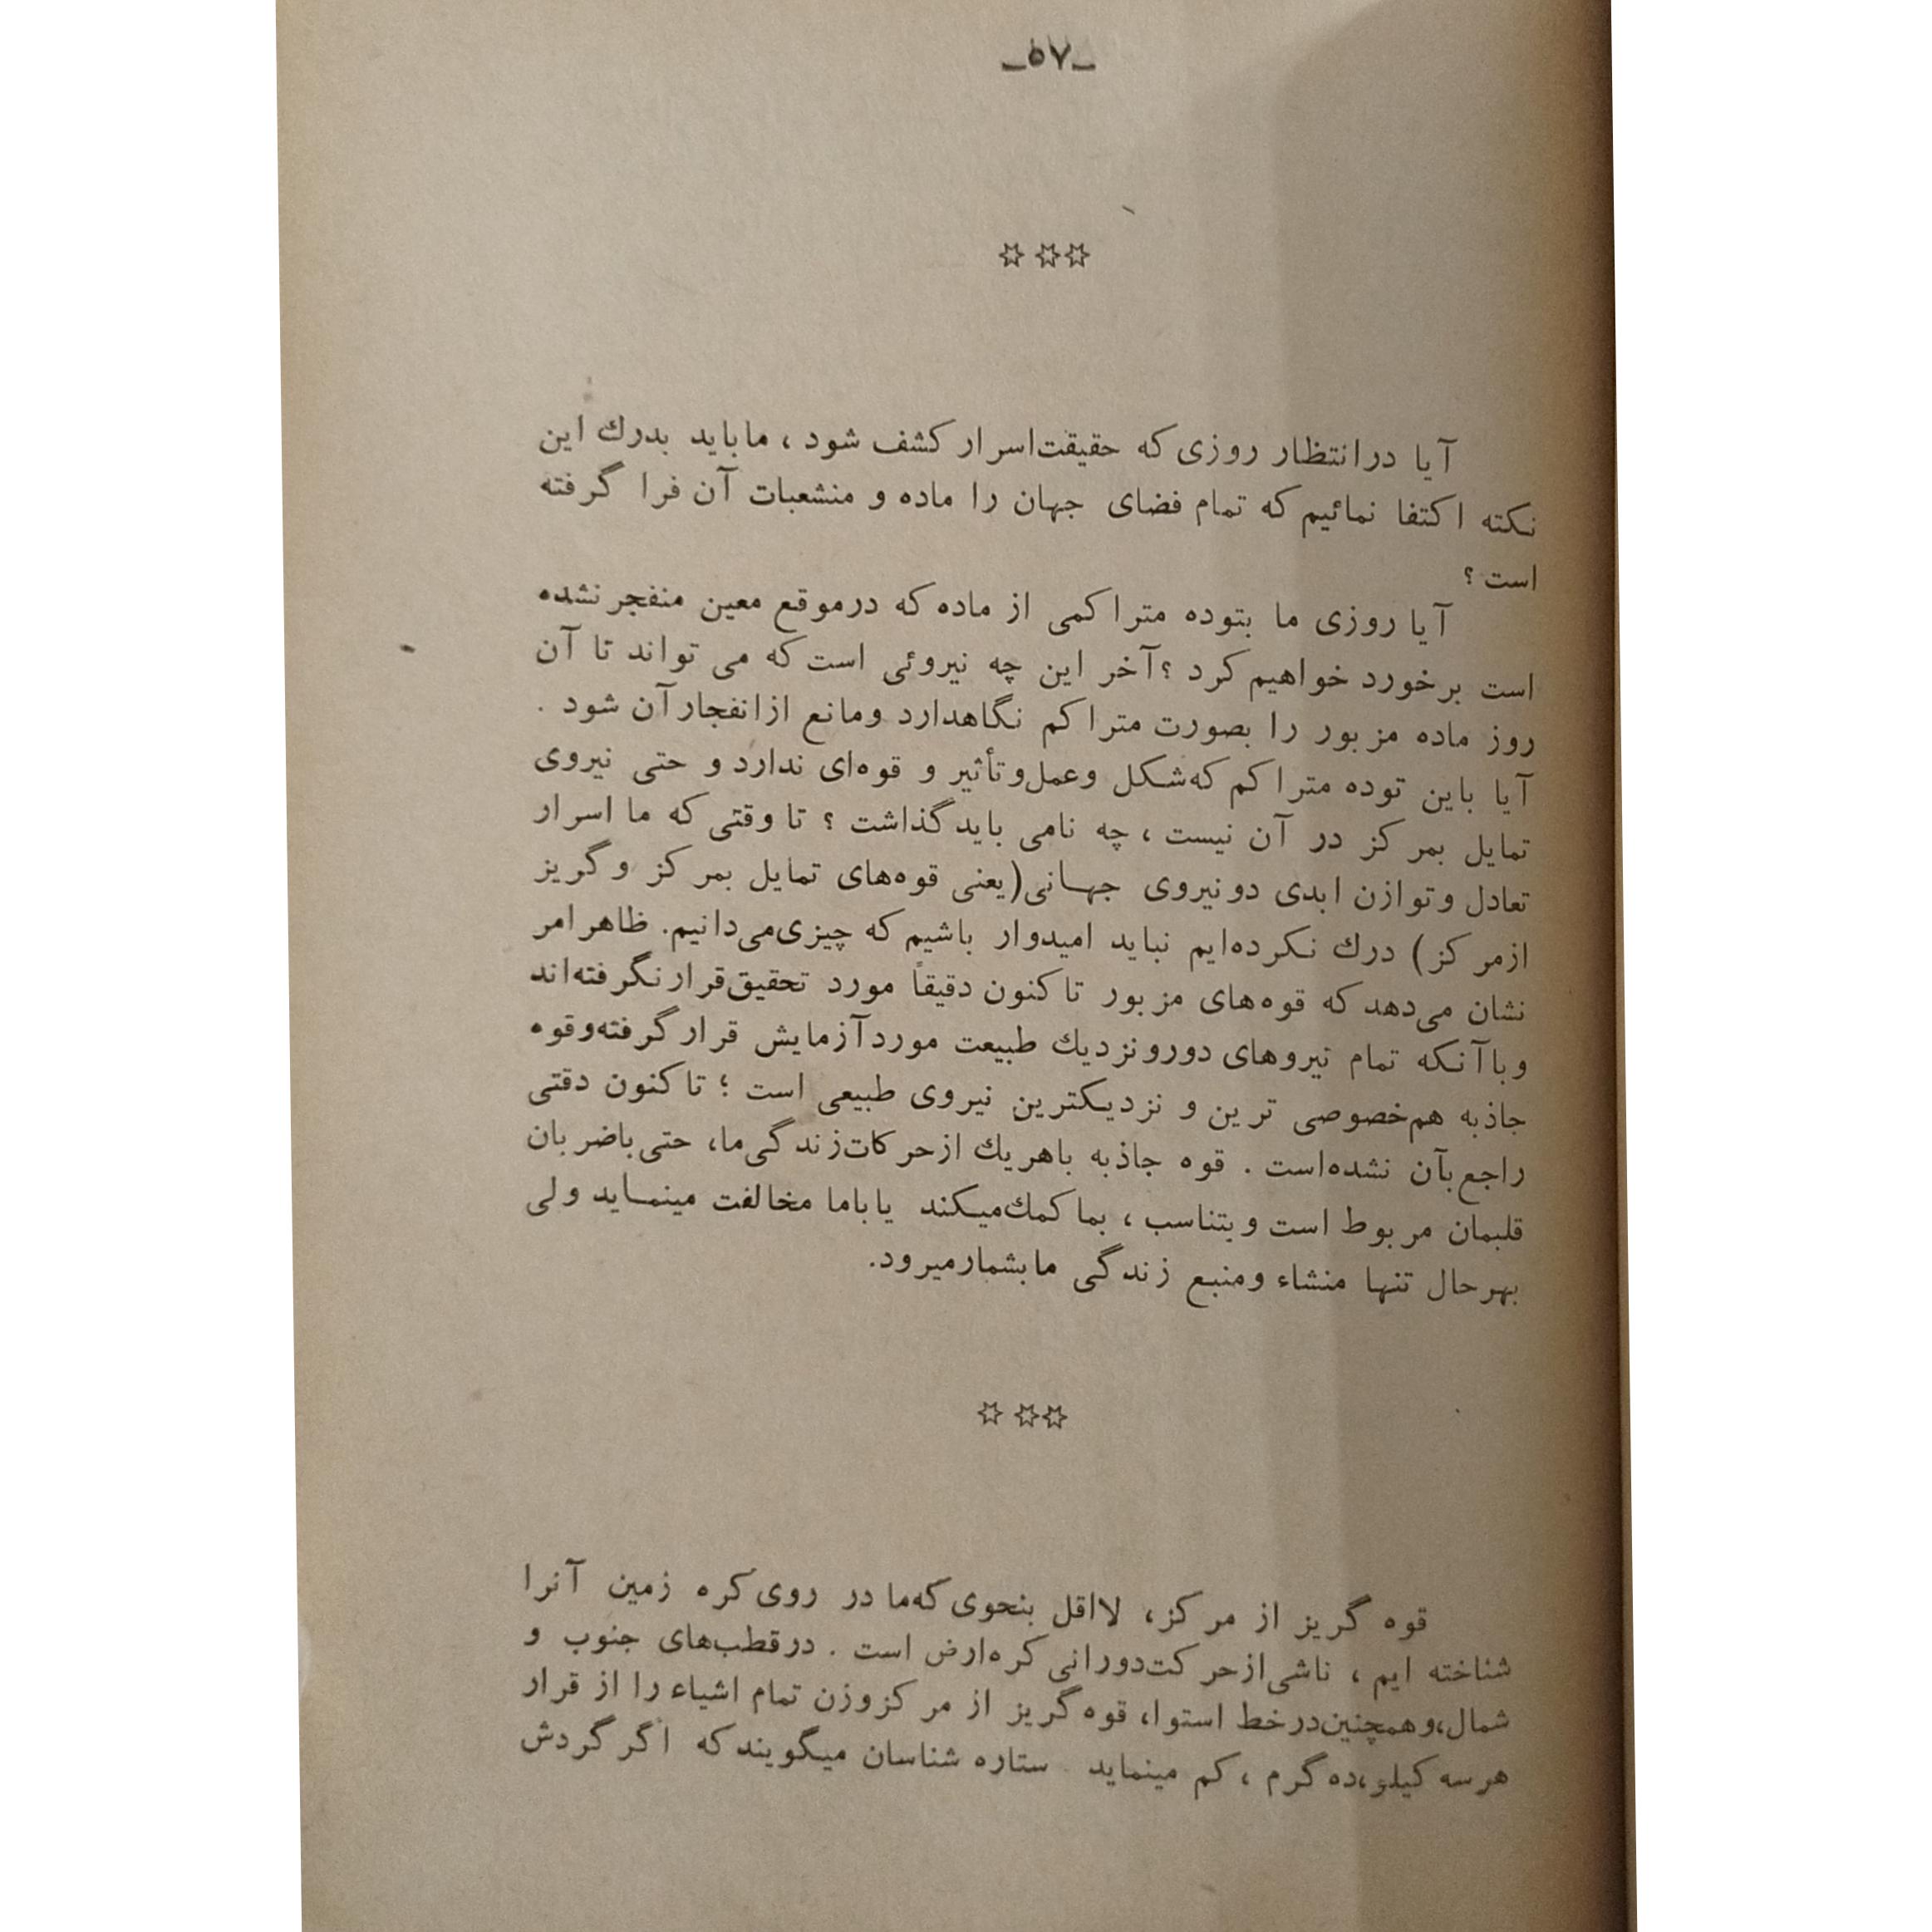 _۵۷_
☆☆ ☆
آیا درانتظار روزی که حقیقت‌اسرار کشف شود ، ماباید بدرك این
نکته اکتفا نمائیم که تمام فضای جهان را ماده و منشعبات آن فرا گرفته
است ؟
آیا روزی ما بتوده متراکمی از ماده که درموقع معین منفجر نشده
است برخورد خواهیم کرد ؟ آخر این چه نیروئی است که می تواند تا آن
روز ماده مزبور را بصورت متراکم نگاهدارد ومانع ازانفجار آن شود .
آیا باین توده متراکم که‌شکل وعمل‌وتأثیر و قوه‌ای ندارد و حتی نیروی
تمایل بمرکز در آن نیست ، چه نامی باید گذاشت ؟ تا وقتی که ما اسرار
تعادل وتوازن ابدی دونیروی جهانی(یعنی قوه‌های تمایل بمرکز وگریز
ازمرکز) درك نکرده‌ایم نباید امیدوار باشیم که چیزی‌می‌دانیم. ظاهر امر
نشان می‌دهد که قوه‌های مزبور تاکنون دقیقاً مورد تحقیق‌قرار نگرفته‌اند
وباآنکه تمام نیروهای دورونزدیك طبیعت مورد آزمایش قرار گرفته‌وقوه
جاذبه هم‌خصوصی ترین و نزدیکترین نیروی طبیعی است ؛ تاکنون دقتی
راجع‌بآن نشده‌است . قوه جاذبه باهریك ازحرکات‌زندگی‌ما، حتی‌باضربان
قلبمان مربوط است وبتناسب ، بما کمك‌میکند یاباما مخالفت مینماید ولی
بهرحال تنها منشاء ومنبع زندگی مابشمارمیرود.
☆☆ ☆
قوه گریز از مرکز، لااقل بنحوی که‌ما در روی کره زمین آنرا
شناخته ایم ، ناشی‌ازحرکت‌دورانی کره‌ارض است . درقطب‌های جنوب و
شمال،وهمچنین‌درخط استوا، قوه گریز از مرکزوزن تمام اشیاء را از قرار
هرسه کیلو،ده گرم ، کم مینماید ستاره شناسان میگویند که اگر گردش